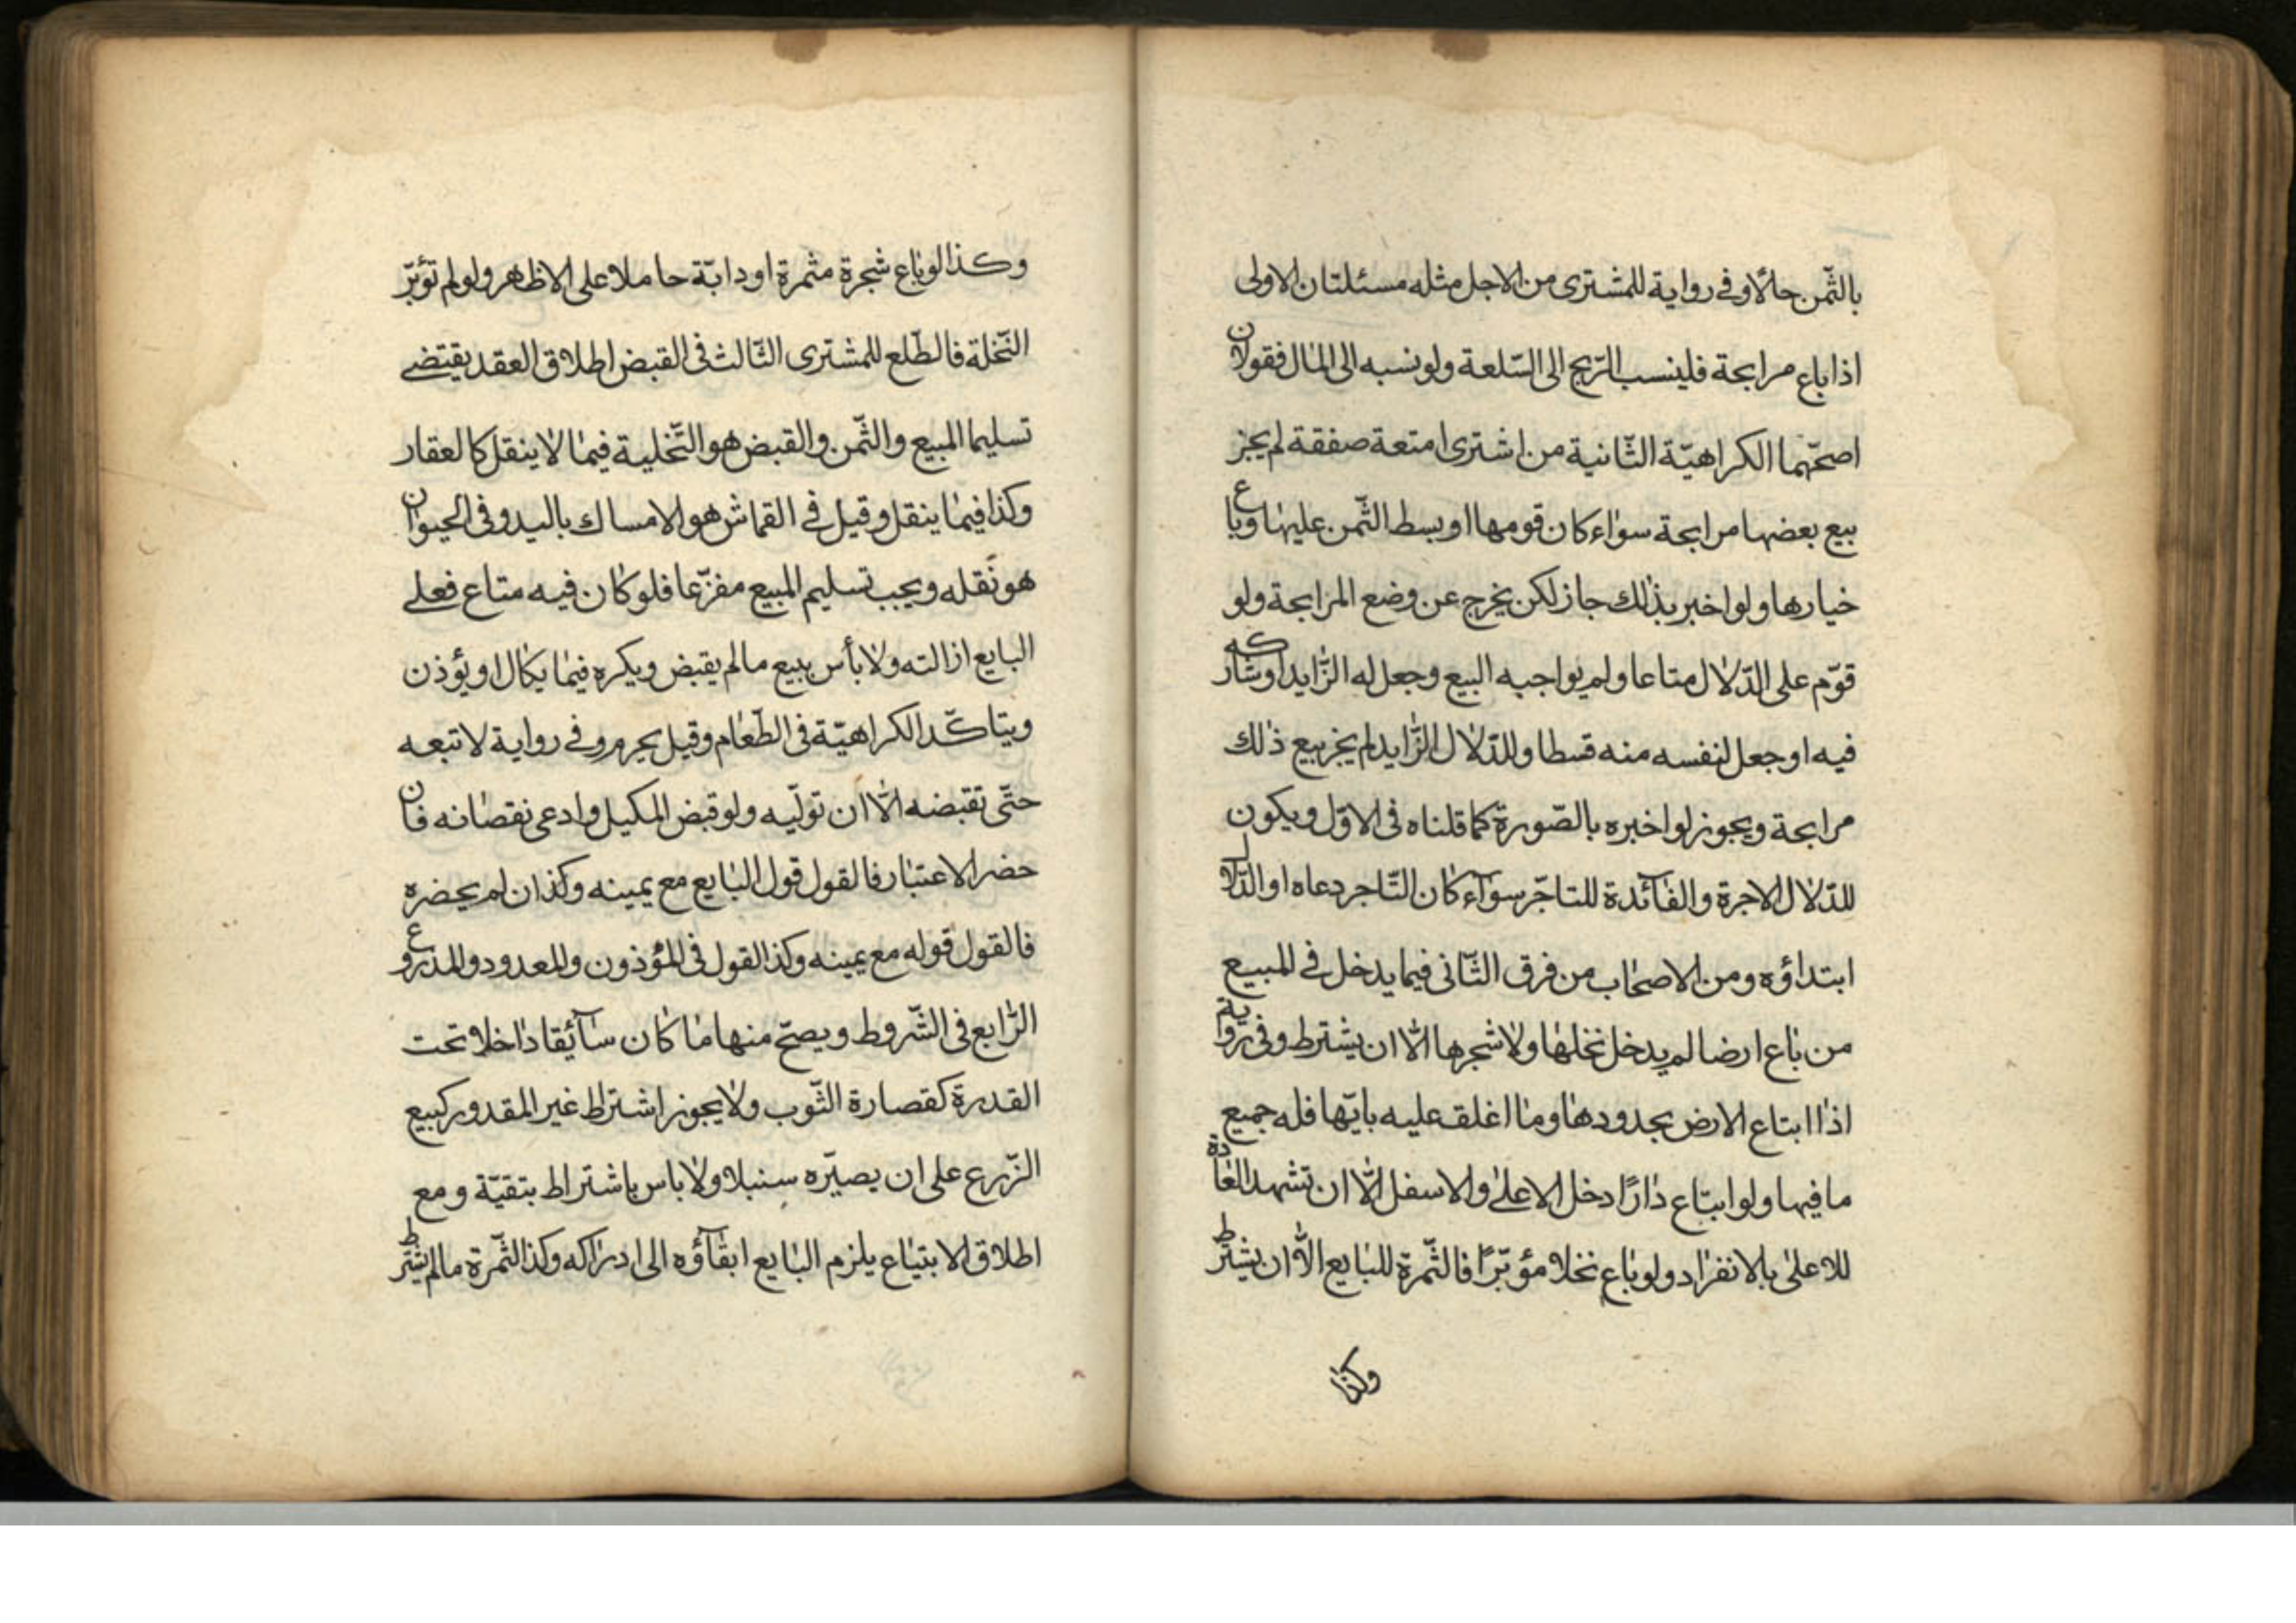 بالثّمن حالّا وفى رواية للمشترى من الاجل مثله مسئلتان الاولى
اذا باع مرابحة فلينسب الرّبح الى السّلعة ولو نسبه الى المال فقولان
اصحّهما الكراهيّة الثّانية من اشترى امتعة صفقة لم يجز
بيع بعضها مرابحة سواء كان قومها او بسط الثّمن عليها وباع
خيارها ولو اخبر بذلك جاز لكن يخرج عن وضع المرابحة ولو
قوّم على الدّلال متاعا ولم يواجبه البيع وجعل له الزّايد اوشاركه
فيه او جعل لنفسه منه قسطا وللدّلال الزّايد لم يجز بيع ذلك
مرابحة ويجوز لو اخبره بالصّورة كما قلناه فى الاوّل ويكون
للدّلال الاجرة والفآئدة للتاجّر سوآء كان التّاجر دعاه او الدّلال
ابتداؤه ومن الاصحاب من فرق الثّانى فيما يدخل فى المبيع
من باع ارضا لم يدخل نخلها ولا شجرها الّا ان يشترط وفى رواية
اذا ابتاع الارض بحدودها وما اغلق عليه بابّها فله جميع
ما فيها ولو ابتاع دارًا دخل الاعلى والاسفل الّا ان تشهد العادة
للاعلى بالانفراد ولو باع نخلا مؤبّرًا فالثّمرة للبايع الّا ان يشترط
وكذا
وكذا لو باع شجرة مثمرة او دابّة حاملا على الاظهر ولو لم تؤبّر
النّخلة فالطّلع للمشترى الثّالث فى القبض اطلاق العقد يقتضى
تسليم المبيع والثّمن والقبض هو التّخلية فيما لا ينقل كالعقار
وكذا فيما ينقل وقيل فى القماش هو الامساك باليد وفى الحيوان
هو نقله ويجب تسليم المبيع مفرّغا فلو كان فيه متاع فعلى
البايع ازالته ولا بأس ببيع ما لم يقبض ويكره فيما يكال او يؤذن
ويتاكّد الكراهيّة فى الطّعام وقيل يحرم وفى رواية لا تبعه
حتّى تقبضه الّا ان تولّيه ولو قبض المكيل وادعى نقصانه فان
حضر الاعتبار فالقول قول البايع مع يمينه وكذا ان لم يحضره
فالقول قوله مع يمينه وكذا القول فى المؤذون والمعدود والمذروع
الرّابع فى الشّروط ويصحّ منها ما كان سآئقا داخلا تحت
القدرة كقصارة الثّوب ولا يجوز اشتراط غير المقدور كبيع
الزّرع على ان يصيّره سنبلا ولا باس باشتراط بتقيّة ومع
اطلاق الابتياع يلزم البايع ابقآؤه الى ادراكه وكذا الثّمرة ما لم يشترط